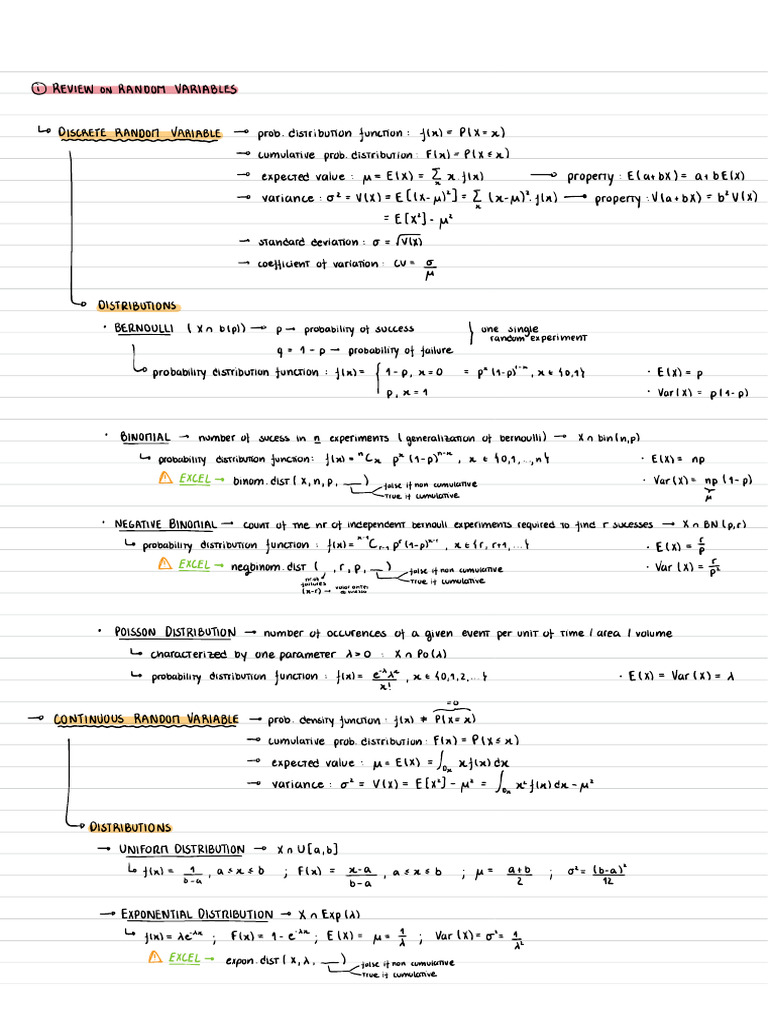 ① REVIEW ON RANDOM VARIABLES
↳ DISCRETE RANDOM VARIABLE → prob. distribution function : f(x) = P(X = x)
→ cumulative prob. distribution : F(x) = P(X ≤ x)
→ expected value : μ = E(X) = Σₓ x . f(x) → property : E(a+bX) = a + bE(X)
→ variance : σ² = V(X) = E[(X-μ)²] = Σₓ (x-μ)² . f(x) → property : V(a+bX) = b² V(X)
= E[X²] - μ²
→ standard deviation : σ = √V(X)
→ coefficient of variation : CV = σ/μ
↳ DISTRIBUTIONS
• BERNOULLI ( X ∩ b(p)) → p → probability of success } one single random experiment
q = 1 - p → probability of failure
↳ probability distribution function : f(x) = { 1 - p, x = 0 = pˣ (1-p)¹⁻ˣ, x ∈ {0,1} • E(X) = p
p, x = 1 • Var(X) = p(1-p)
• BINOMIAL → number of sucess in n experiments (generalization of bernoulli) → X ∩ bin(n,p)
↳ probability distribution function : f(x) = ⁿCₓ pˣ (1-p)ⁿ⁻ˣ , x ∈ {0,1,...,n} • E(X) = np
⚠ EXCEL → binom.dist ( x, n, p, __ ) false if non cumulative • Var(X) = np (1-p)
True if cumulative μ
• NEGATIVE BINOMIAL → count of the nr of independent bernoulli experiments required to find r sucesses → X ∩ BN (p,r)
↳ probability distribution function : f(x) = ˣ⁻¹Cᵣ₋₁ pʳ (1-p)ˣ⁻ʳ , x ∈ {r, r+1,...} • E(X) = r/p
⚠ EXCEL → negbinom.dist ( , r, p, __ ) false if non cumulative • Var (X) = r/p²
True if cumulative
nr of failures
(x-r) →
• POISSON DISTRIBUTION → number of occurences of a given event per unit of time / area / volume
↳ characterized by one parameter λ>0 : X ∩ Po(λ)
↳ probability distribution function : f(x) = e^-λ λˣ / x! , x ∈ {0,1,2,...} • E(X) = Var (X) = λ
=0
→ CONTINUOUS RANDOM VARIABLE → prob. density function : f(x) ≠ P(X=x)
→ cumulative prob. distribution : F(x) = P(X ≤ x)
→ expected value : μ = E(X) = ∫Dₓ x f(x) dx
→ variance : σ² = V(X) = E[X²] - μ² = ∫Dₓ x² f(x) dx - μ²
↳ DISTRIBUTIONS
→ UNIFORM DISTRIBUTION → X ∩ U[a,b]
↳ f(x) = 1/(b-a) , a ≤ x ≤ b ; F(x) = (x-a)/(b-a) , a ≤ x ≤ b ; μ = (a+b)/2 ; σ² = (b-a)²/12
→ EXPONENTIAL DISTRIBUTION → X ∩ Exp(λ)
↳ f(x) = λe^-λx ; F(x) = 1 - e^-λx ; E(X) = μ = 1/λ ; Var (X) = σ² = 1/λ²
⚠ EXCEL → expon.dist ( x, λ, __ ) false if non cumulative
True if cumulative